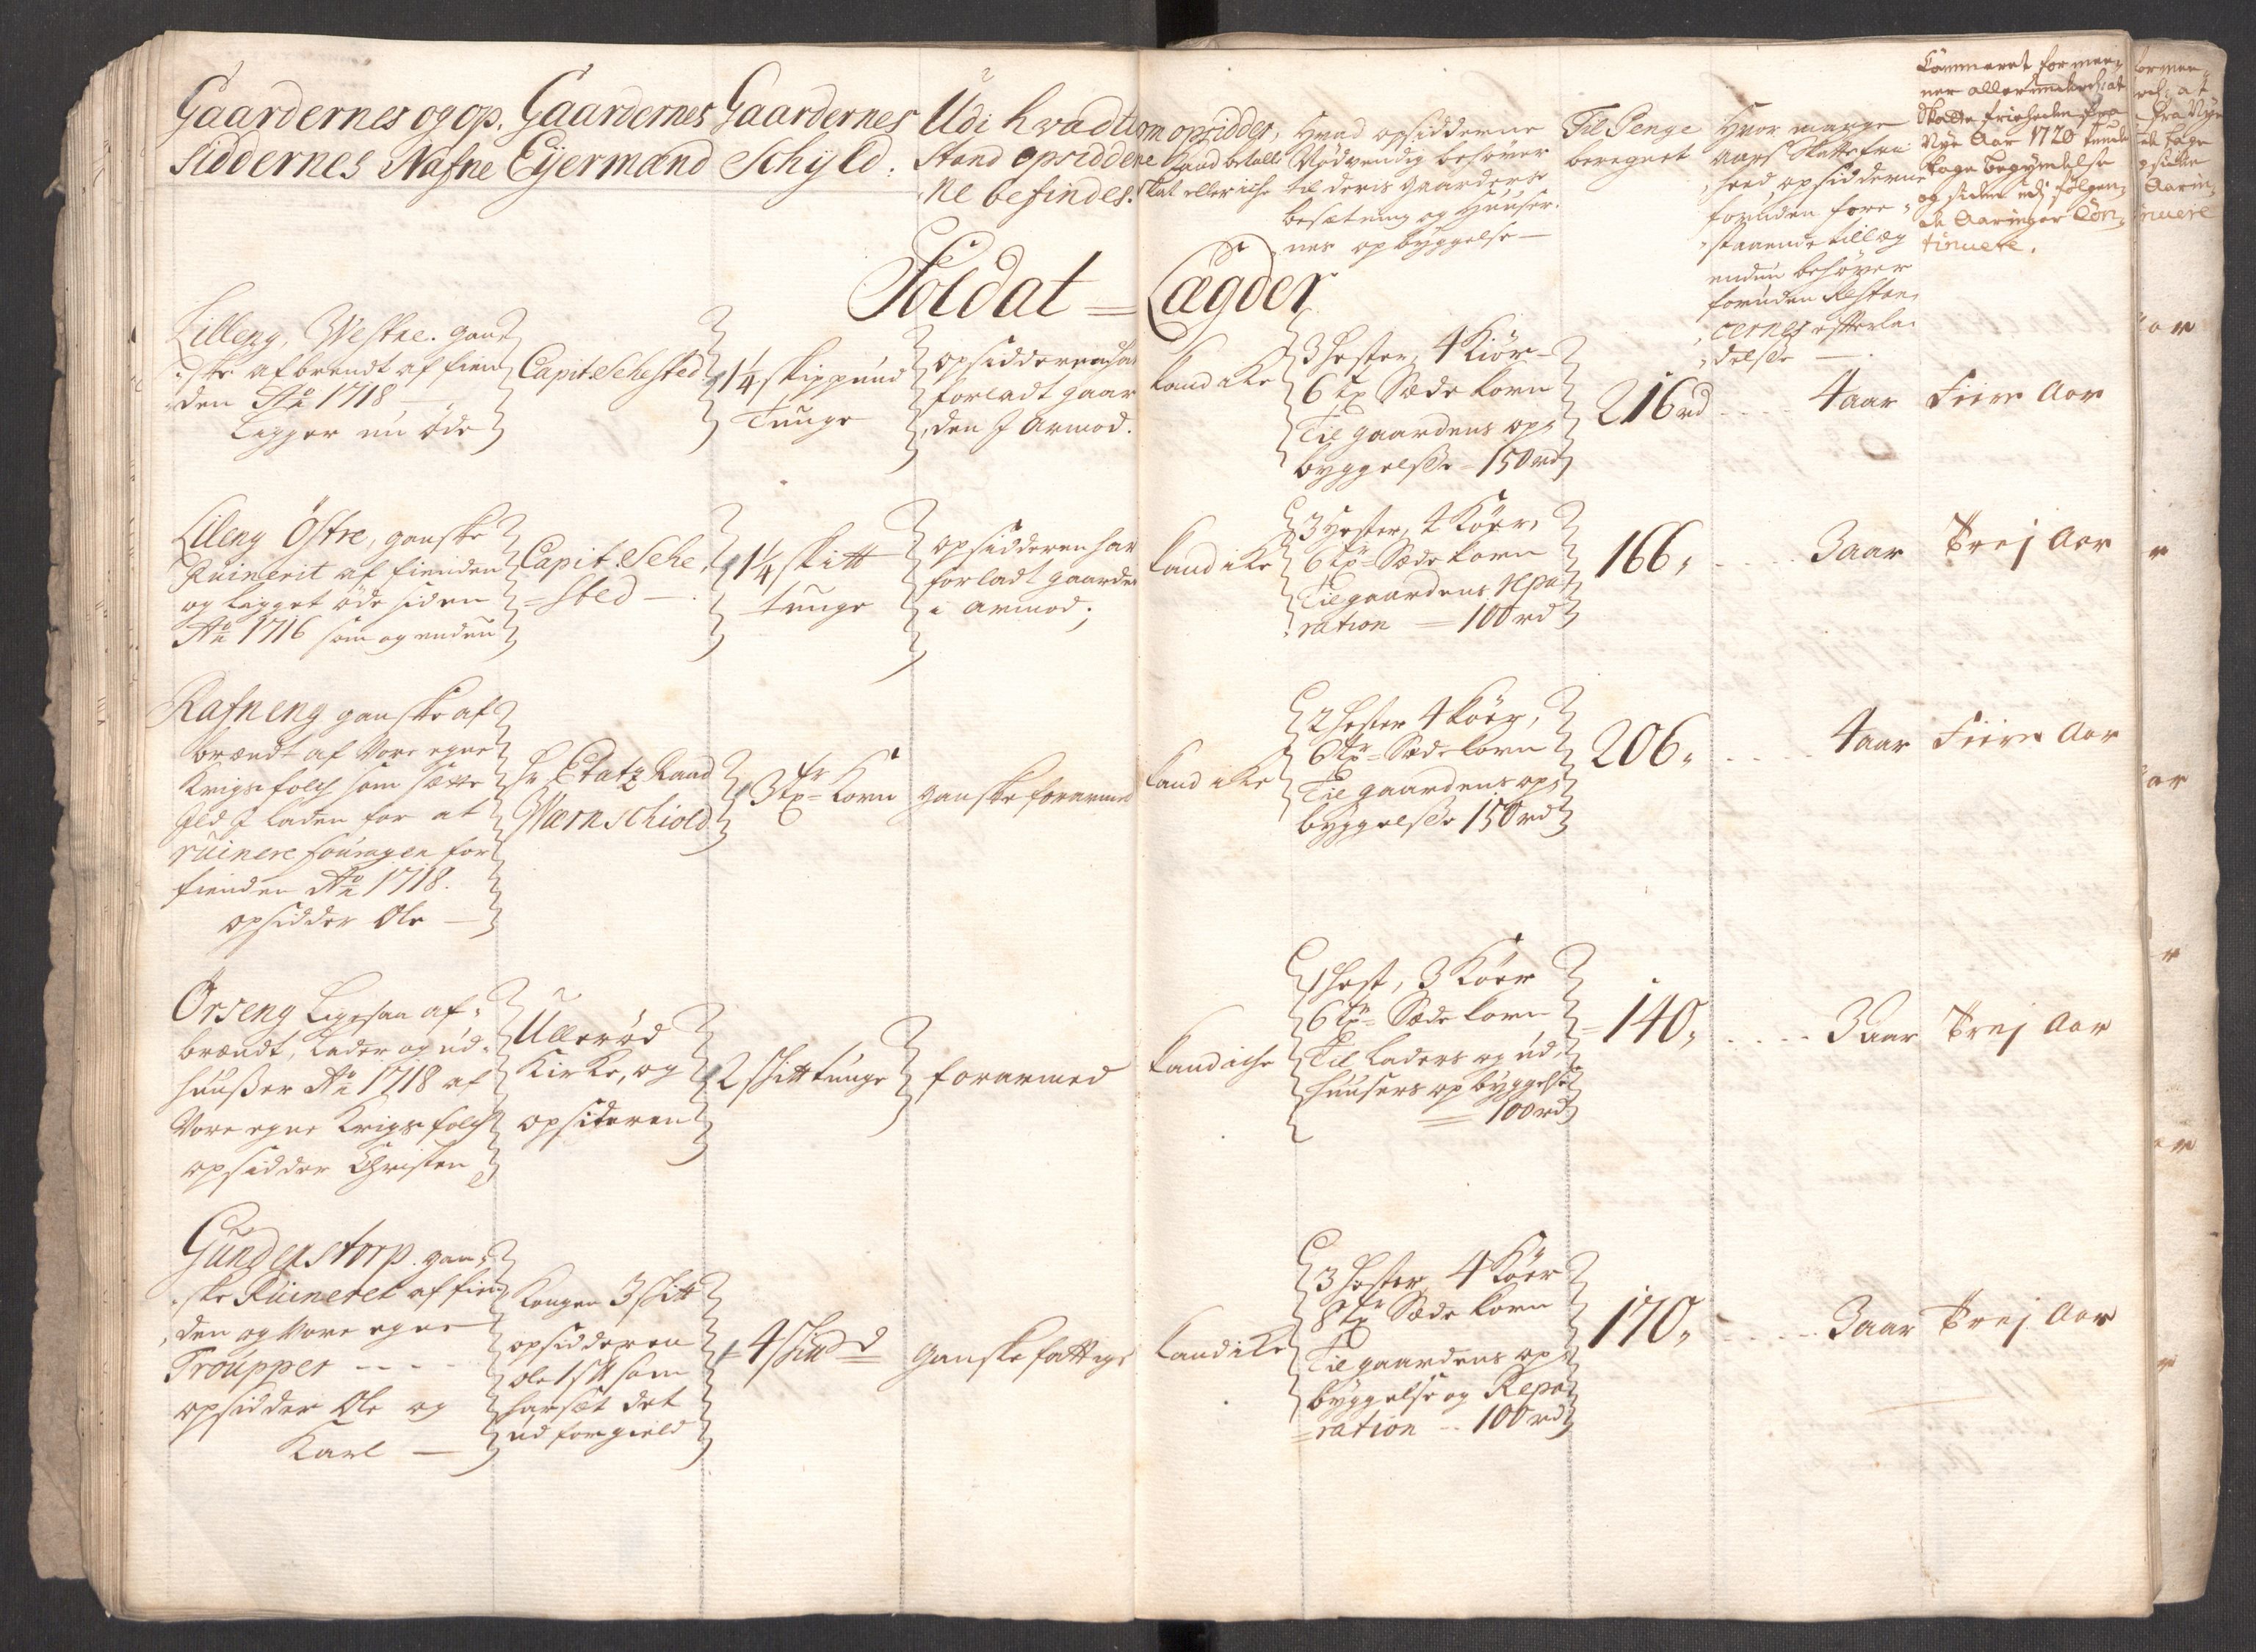 Gaardernes og op,
siddernes Nafne
Gaardernes
Eyermænd
Gaardernes
Schyld.
Udi hvad til
Stand opsidder
ne befindes.
om opsidder,
kand betalle
skat eller iche
Hvad opsidderne
Nødvendig behøver
til deris gaarders
besætning og Huuser,
nes opbyggelse —
Til Penge
beregnet
Hvor mange
aars Skattefrj
heed opsidderne
foruden fore =
staaende tillæg
endnu behøver
foruden Restan,
cernes efterla,
delse —
Cammeret formee,
ner allerunderd: at
Skatte friheden fra
Nye Aar 1720 kunde
tage begyndelse
og siden udj følgen,
de Aaringer Con,
tinuere.
Soldat = Lægder
Lilleng, Westre. gan
ske afbrendt af fien
den Ao 1718 —
Ligger nu øde
Capit. Schested
1¼ skippund
Tunge
opsidderen har
forladt gaar
den J armod.
kand ike
3 hester, 4 Kiør —
6 tr Sæde korn
Til gaardens op,
byggelse = 150 rd
216 rd
4 aar
Fiire Aar
Lileng Østre, ganske
Ruinerit af fienden
og ligget øde siden
Ao 1716 som og endnu
Capit. Sche,
= sted —
1¼ skitt
tunge
opsidderen har
forladt gaarden
i armod;
kand ike
3 Hester, 2 Köer,
6 tr = Sæde korn
Til gaardens repa,
ration — 100 rd
166,
3 aar
Trej Aar
Rafneng ganske af
brændt af Vore egne
Krigsfolch som satte
Jld J Laden for at
ruinere fouragen for
fienden Ao 1718.
opsidder Ole —
hr Etatz Raad
Wærnschiold
3 tr = Korn
ganske forarmed
kand ike
2 hester 4 köer,
6 tr = Sæde korn
Til gaardens op,
byggelse 150 rd
206,
4 aar
Fiire Aar
Orseng Ligesaa af,
brændt, Lader og ud,
huußer Ao 1718 af
Vore egne Krigsfolch
opsidder Christen
Ullerød
Kirke, og
opsideren
2 skittunge
forarmed
kand iche
1 hest, 3 Köer
6 tr = Sæde korn
Til Laders og ud,
huusers opbyggelse
= 100 rd
140,
3 aar
Trej Aar
Gundenstorp. gan,
ske Ruineret af fien
den og Vore egne
Troupper - - -
opsidder Ole og
Karl —
Kongen 3 skitt
opsidderen
ole 1 skt som
har sat det
ud for gield
4 skittd
ganske fattige
kand ike
3 hester, 4 Köer
8 tr Sæde korn
Til gaardens op,
byggelse og Repa,
ration - 100 rd
170,
3 aar
Trej Aar